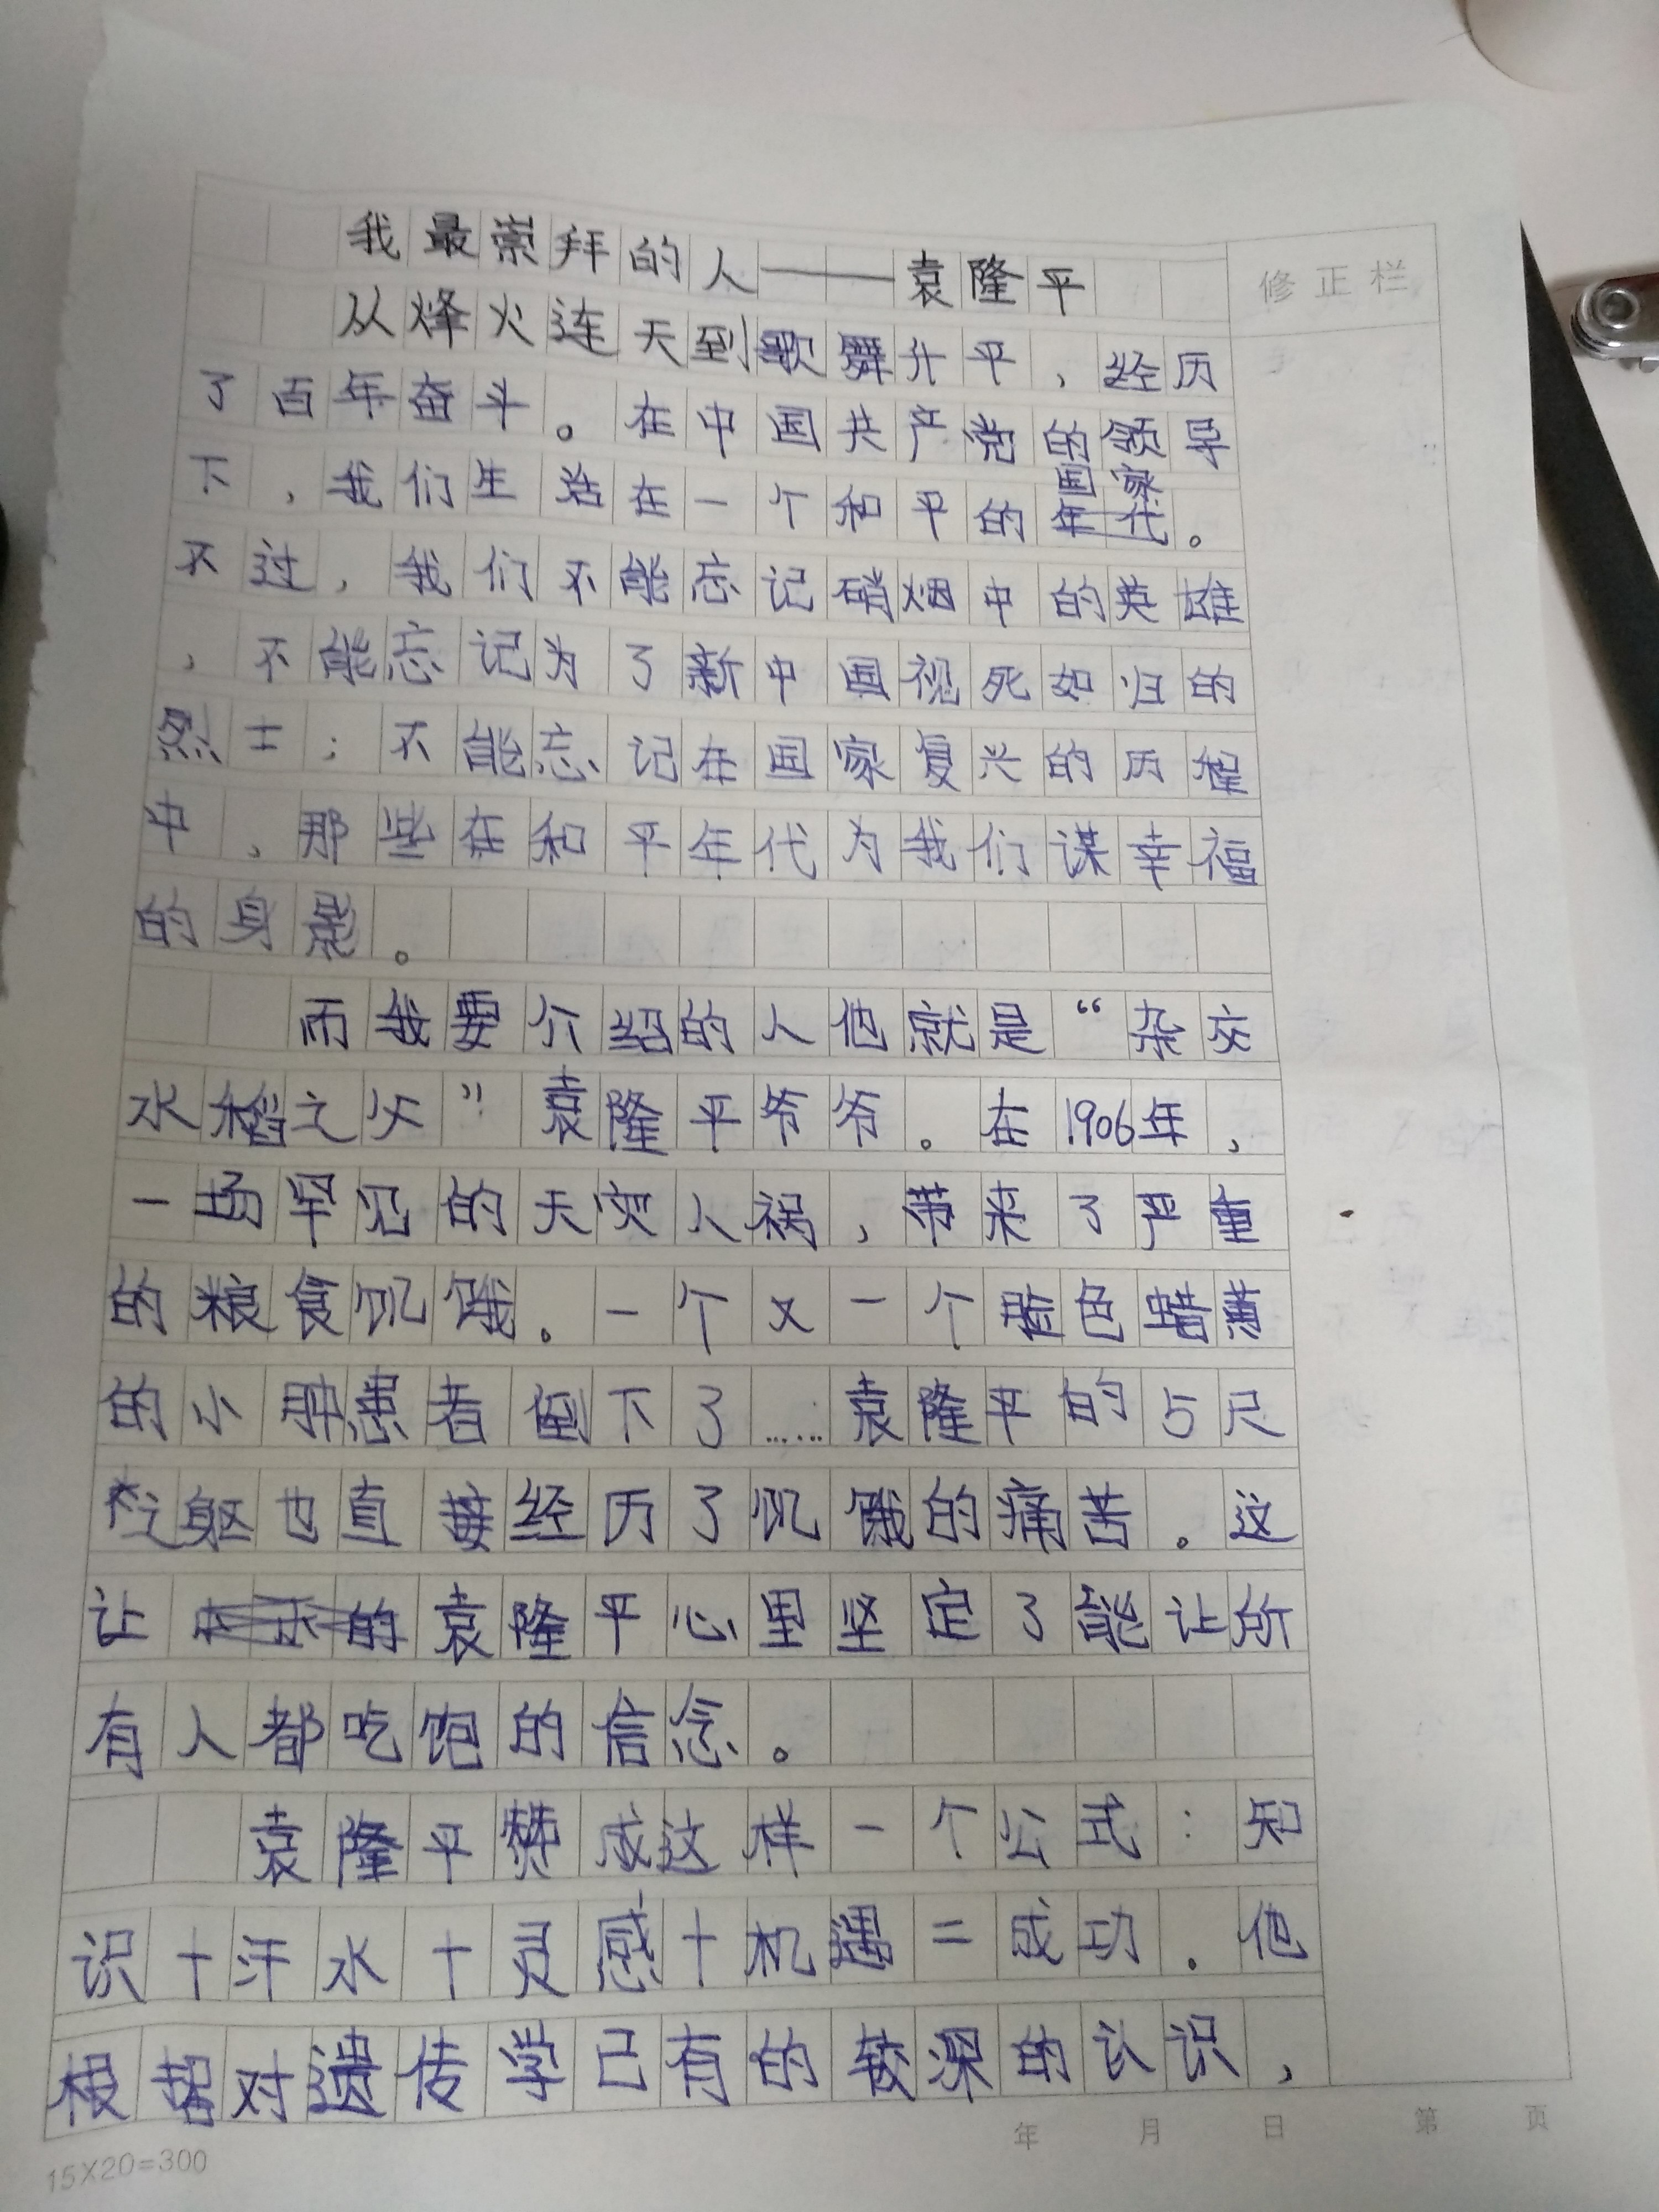 我最崇拜的人——袁隆平
修正栏
从烽火连天到歌舞升平，经历
了百年奋斗。在中国共产党的领导
国家
下，我们生活在一个和平的年代。
不过，我们不能忘记硝烟中的英雄
，不能忘记为了新中国视死如归的
烈士；不能忘记在国家复兴的历程
中，那些在和平年代为我们谋幸福
的身影。
而我要介绍的人他就是“杂交
水稻之父”袁隆平爷爷。在1906年，
一场罕见的天灾人祸，带来了严重
的粮食饥饿。一个又一个脸色蜡黄
的小肿患者倒下了……袁隆平的5尺
之躯也直接经历了饥饿的痛苦。这
让的袁隆平心里坚定了能让所
有人都吃饱的信念。
袁隆平赞成这样一个公式：知
识+汗水+灵感+机遇=成功。他
根据对遗传学已有的较深的认识，
年 月 日 第 页
15X20=300